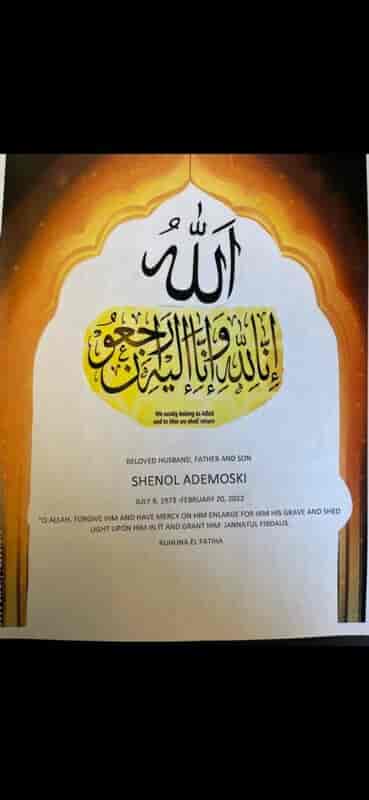 الله
إنا لله وإنا إليه راجعون
We surely belong to Allah
and to Him we shall return
BELOVED HUSBAND, FATHER AND SON
SHENOL ADEMOSKI
JULY 9, 1973 -FEBRUARY 20, 2022
"O ALLAH, FORGIVE HIM AND HAVE MERCY ON HIM ENLARGE FOR HIM HIS GRAVE AND SHED
LIGHT UPON HIM IN IT AND GRANT HIM JANNATUL FIRDAUS.
RUHUNA EL FATIHA